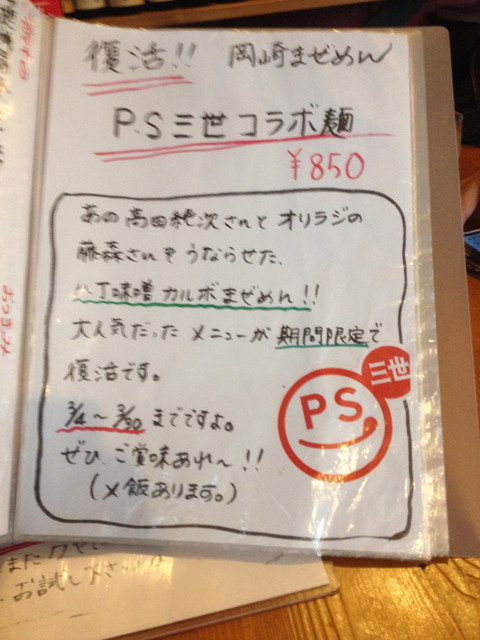 復活!! 岡崎まぜめん
P.S三世コラボ麺
¥850
あの高田純次さんとオリラジの
藤森さんをうならせた、
八丁味噌カルボまぜめん!!
大人気だったメニューが期間限定で
復活です。
3/4〜3/30までですよ。
ぜひ、ご賞味あれ〜!!
(〆飯あります。)
三世
PS
お試し下さい